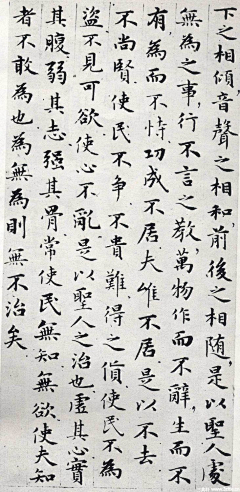 下之相傾,音聲之相和,前後之相随,是以聖人處
無為之事,行不言之教,萬物作而不辭,生而不
有,為而不恃功成不居夫唯不居是以不去
不尚賢使民不争不貴難得之貨使民不為
盜不見可欲使心不亂是以聖人之治也虛其心實
其腹弱其志强其骨常使民無知無欲使夫知
者不敢為也為無為則無不治矣